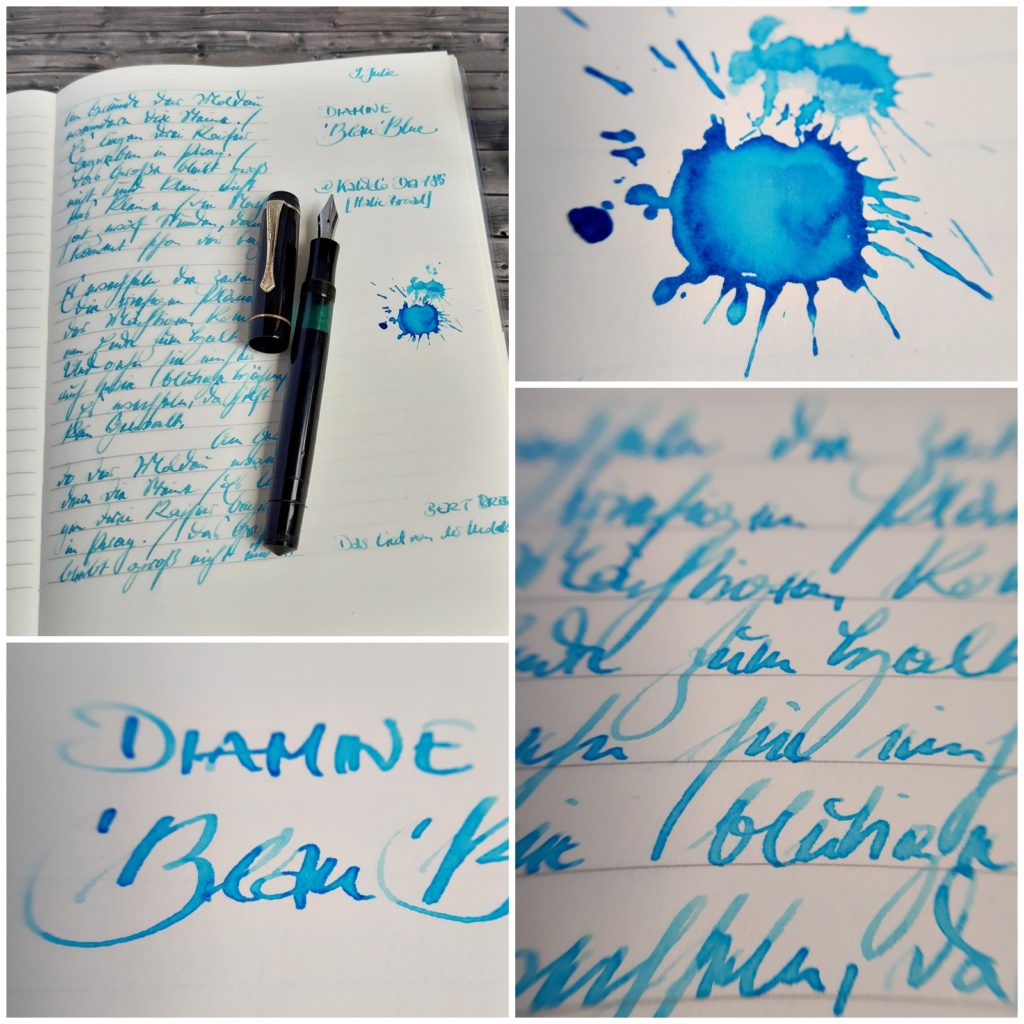 9. Julie
Am Grunde der Moldau
wandern die Steine. /
Es liegen drei Kaiser
begraben in Prag. /
Das Große bleibt groß
nicht und klein nicht
das Kleine. / Die Nacht
hat zwölf Stunden, dann
kommt schon der Tag
Es wechseln die Zeiten
Die riesigen Pläne
der Mächtigen Kom
am Ende zum Halt
Und gehn sie einh
auf wie blutigen Hähne
Es wechseln, da hilft
kein Gewalt.
Am
der Moldau
die Steine / Es
drei Kaiser
in Prag. / Das
bleibt groß nicht
DIAMINE
'Blau' Blue
@ Kaweco Dia 785
[Italic Broad]
BERT BRE
Das Lied von der Molda
DIAMINE
'Blau' B
wechseln die Zeit
riesigen Pläne
Mächtigen Kom
Ende zum Halt
gehn sie einh
wie blutigen
wechseln, da